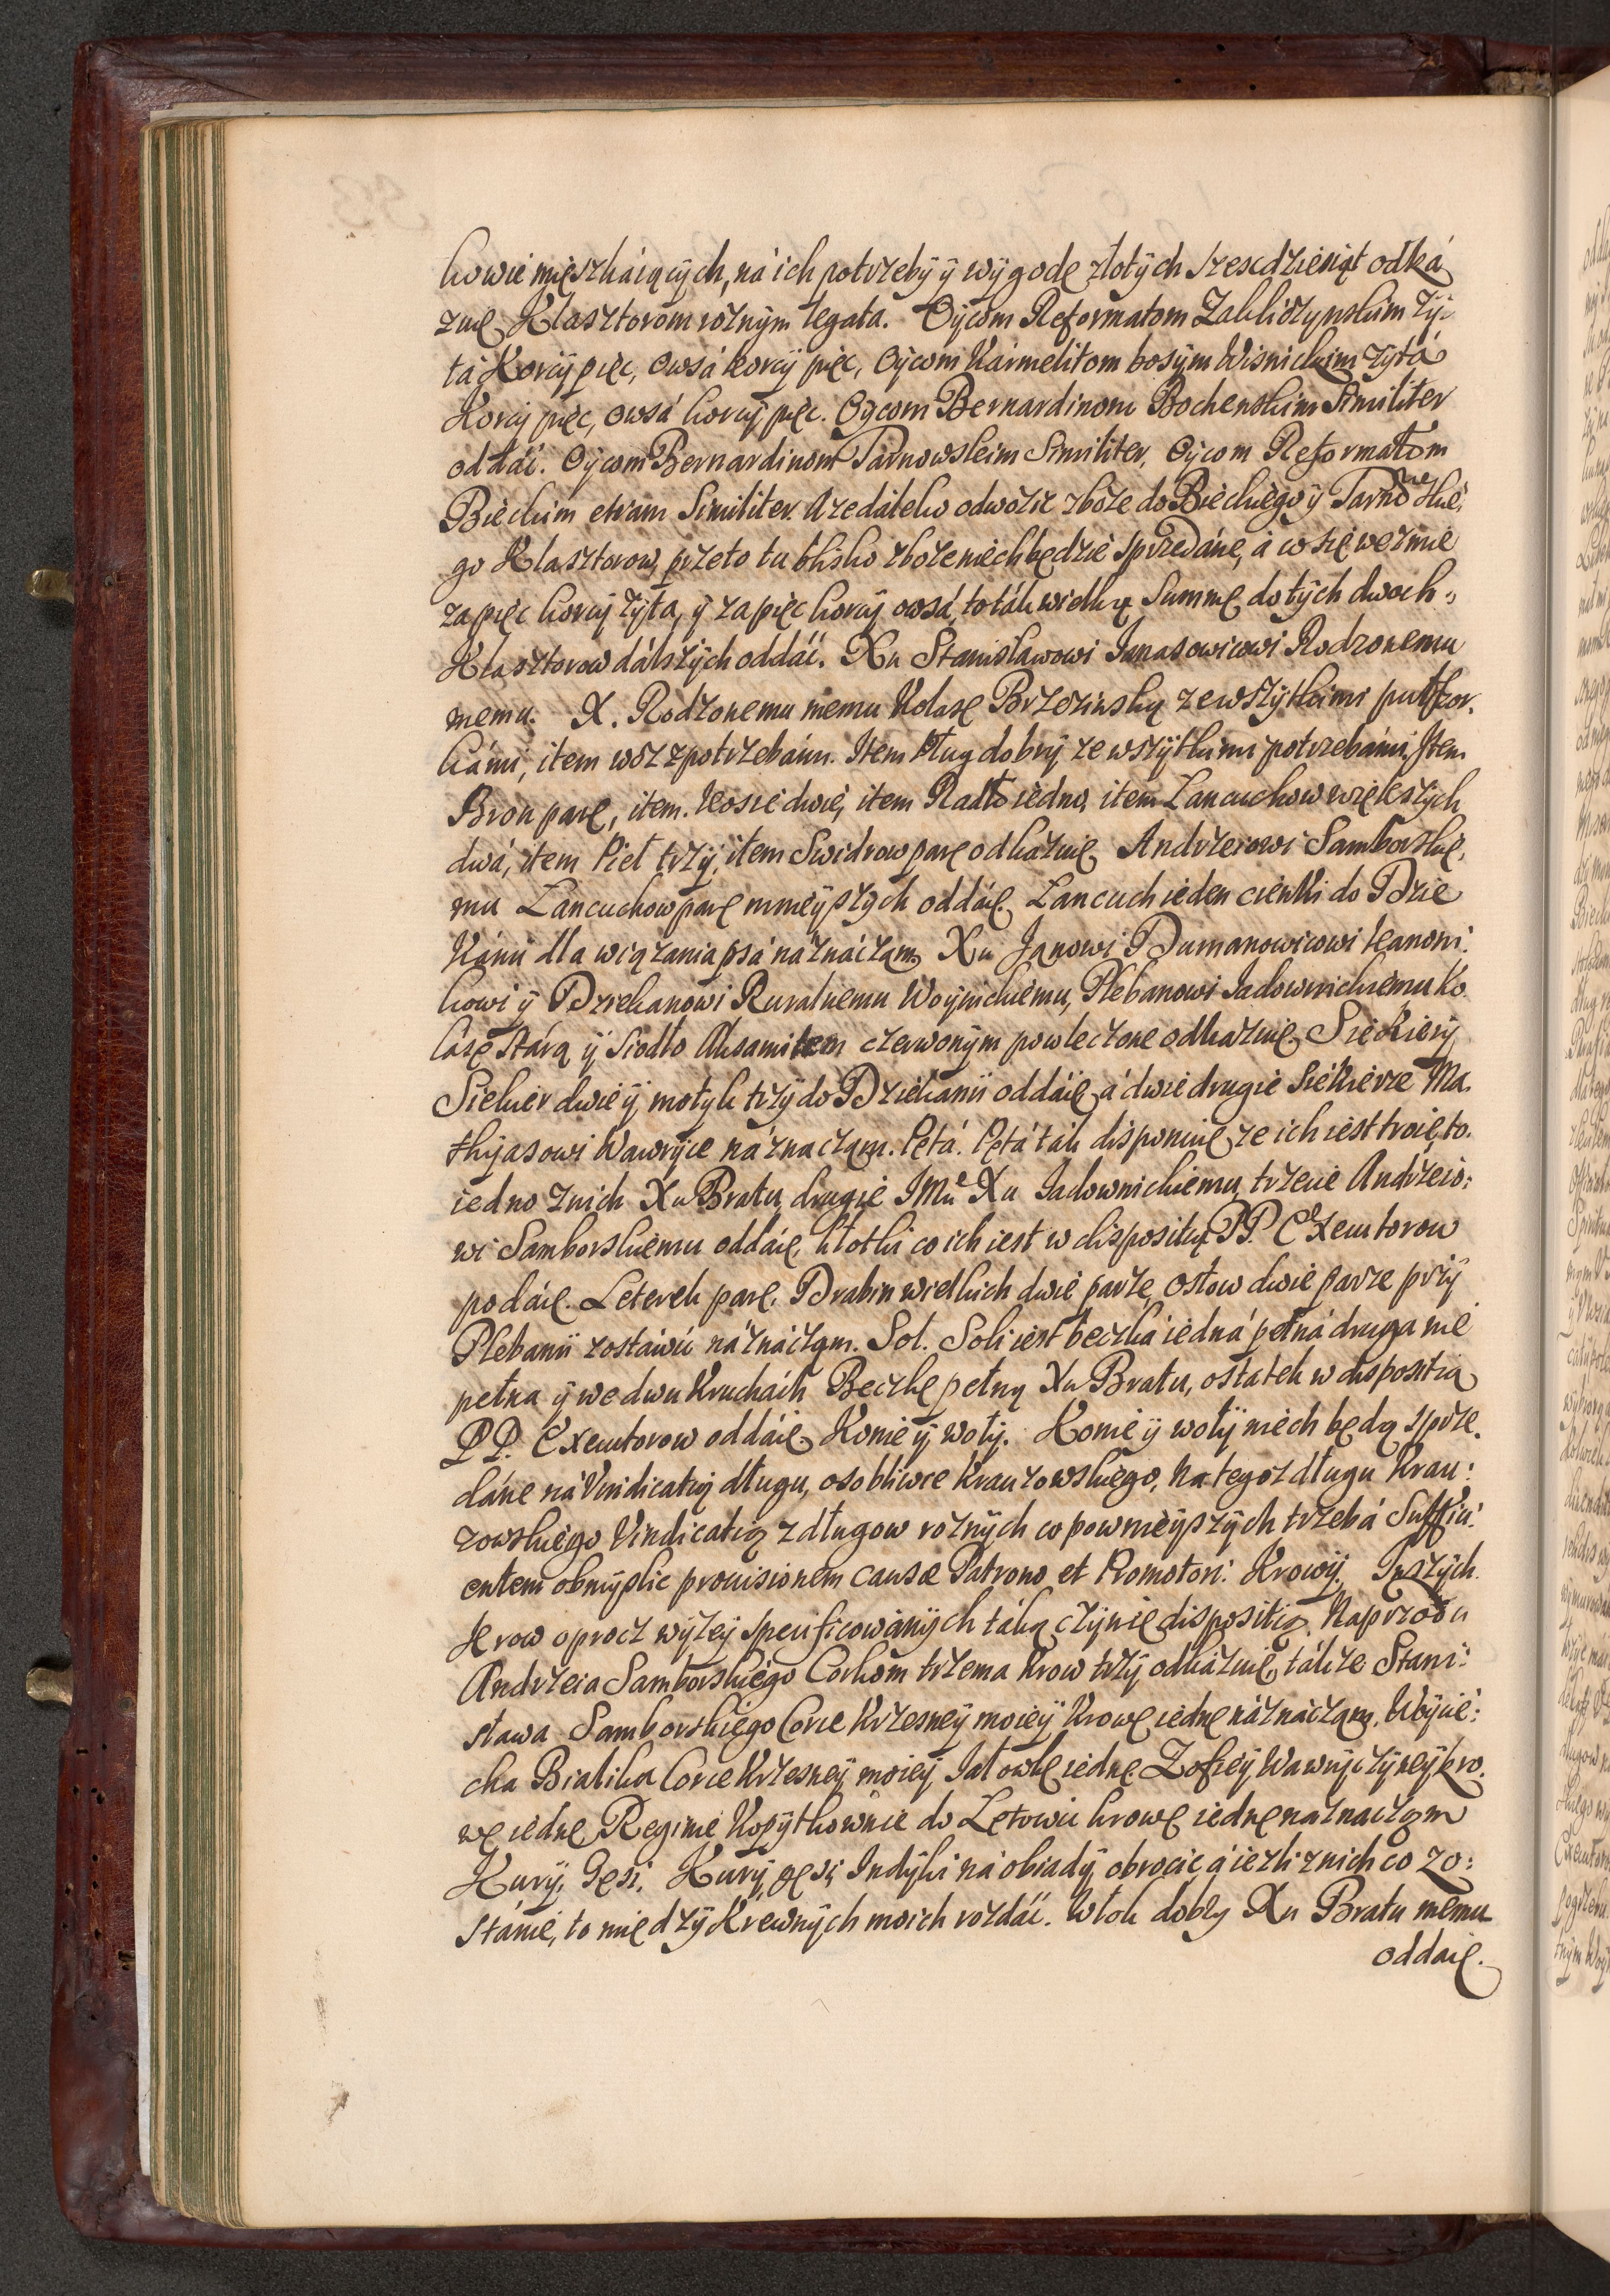 kowie mięszkáiących, ná ich potrzeby ÿ wÿgodę złotÿch szescdziesiąt odká
zuię Klasztorom roznÿm legata. Oÿcom Reformatom Zakliczynskim Zÿ:
tá Korcÿ pięc, owsá korcÿ pięc, Oÿcom Karmelitom bosÿm Wisnickim zÿtá
Korcÿ pięc, owsá korcÿ pięc. Oÿcom Bernardinom Bochenskim Similiter
oddái. Oÿcom Bernardinom Tarnowskim Similiter, Oÿcom Reformatom
Bieckim etiam Similiter. A ze dáleko odwozic zboze do Bieckiego ÿ Tarnowskie,
go Klasztorow, przeto tu blisko zboze niech będzie sprzedáne, á co się wezmie
za pięc korcÿ zÿta, ÿ za pięc korcÿ owsá, to ták wielką Summę do tÿch dwoch
Klasztorow dálszÿch oddái. Xu Stanisławowi Janasowicowi Rodzonemu
memu. X. Rodzonemu memu Kolasę Brzezinską ze wszÿtkimi puszor,
kámi, item woz z potrzebámi. Item Pług dobrÿ ze wszÿtkimi potrzebámi, Item
Bron parę, item. Kosie dwie, item Radło iedno, item Lancuchow większÿch
dwá, item Pieł trzÿ, item Swidrow parę odkazuię. Andrzeiowi Samborskie,
mu Lancuchow parę mnieÿszÿch oddáię. Lancuch ieden cienki do Dzie
kánii dla wiązania psá náznáczam. Xu Janowi Dumanowicowi Kanoni:
kowi ÿ Dziekanowi Ruralnemu Woÿnickiemu, Plebanowi Jadownickiemu Ko
lasę stárą ÿ siodło Aksamitem czerwonÿm powleczone odkazuię. Siekierÿ
Siekier dwie ÿ motyk trzÿ do Dziekanii oddáię, á dwie drugie Siekierze Ma,
thÿasowi Wawrÿce náznaczam. Pętá. Pętá ták disponuię, ze ich iest troie, to.
iedno z nich Xu Bratu, drugie JMu Xu Jadownickiemu, trzecie Andrzeio:
wi Samborskiemu oddáię, Kłotki co ich iest w dispositią PP. Exekutorow
podáię. Leterek parę, Drabin wielkich dwie parze, Osłow dwie parze przÿ
Plebanii zostáwic náznáczam. Sol. Soli iest beczká iedná pełná druga nie
pełna ÿ we dwu Kruchách Beczkę pełną Xu Bratu, ostatek w dispositią
PP. Exekutorow oddáię. Konie ÿ wołÿ. Konie ÿ wołÿ niech będą sprze,
dáne ná Vindicatią długu, osobliwie Krauzowskiego, Na tegoz długu Krau:
zowskiego Vindicatią z długow roznÿch co pownieÿszÿch trzebá Suffici:
entem obmÿslic prouisionem causæ Patrono et Promotori. Krowÿ. Inszÿch
Krow oprocz wÿzeÿ specificowánÿch táką czÿnię dispositią. Naprzodu
Andrzeia Samborskiego Corkom trzema Krow trzÿ odkázuię, tákze Stani:
sława Samborskiego Corce Krzesneÿ moieÿ Krowę iednę náznáczam. Woÿcie:
cha Bialika Corce Krzesneÿ moieÿ Jałowkę iednę. Zofieÿ Wawrÿczÿneÿ kro,
wę iednę. Reginie Kopÿtkownie do Łetowic krowę iednę náznaczam
Kurÿ, Gęsi, Kurÿ, gęsi, Indÿki ná obiadÿ obrocic, á iezli z nich co zo:
stánie, to międzÿ Krewnÿch moich rozdái. Włok dobrÿ Xu Bratu memu
oddaię.